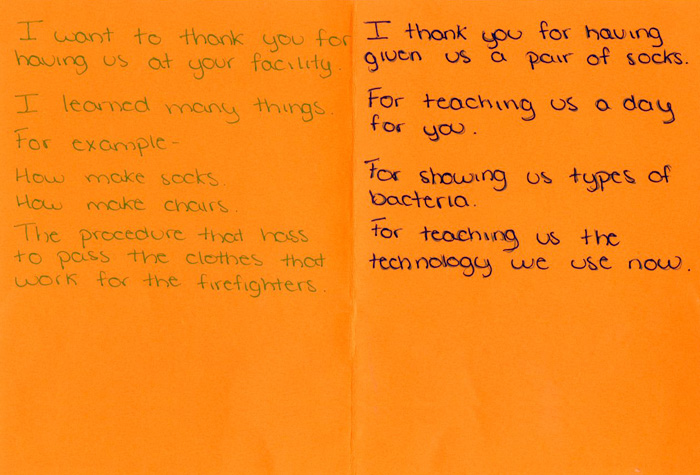 I want to thank you for
having us at your facility.
I learned many things.
For example-
How make socks.
How make chairs.
The procedure that hass
to pass the clothes that
work for the firefighters.
I thank you for having
given us a pair of socks.
For teaching us a day
for you.
For showing us types of
bacteria.
For teaching us the
technology we use now.